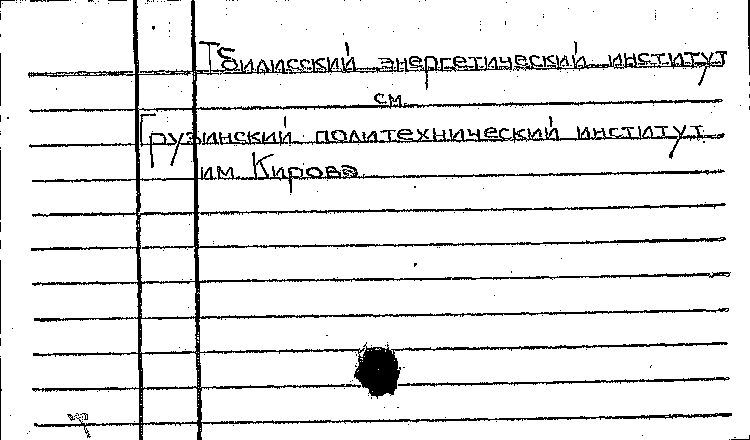 Тбилисский энергетический институт
см.
Грузинский политехнический институт
им. Кирова